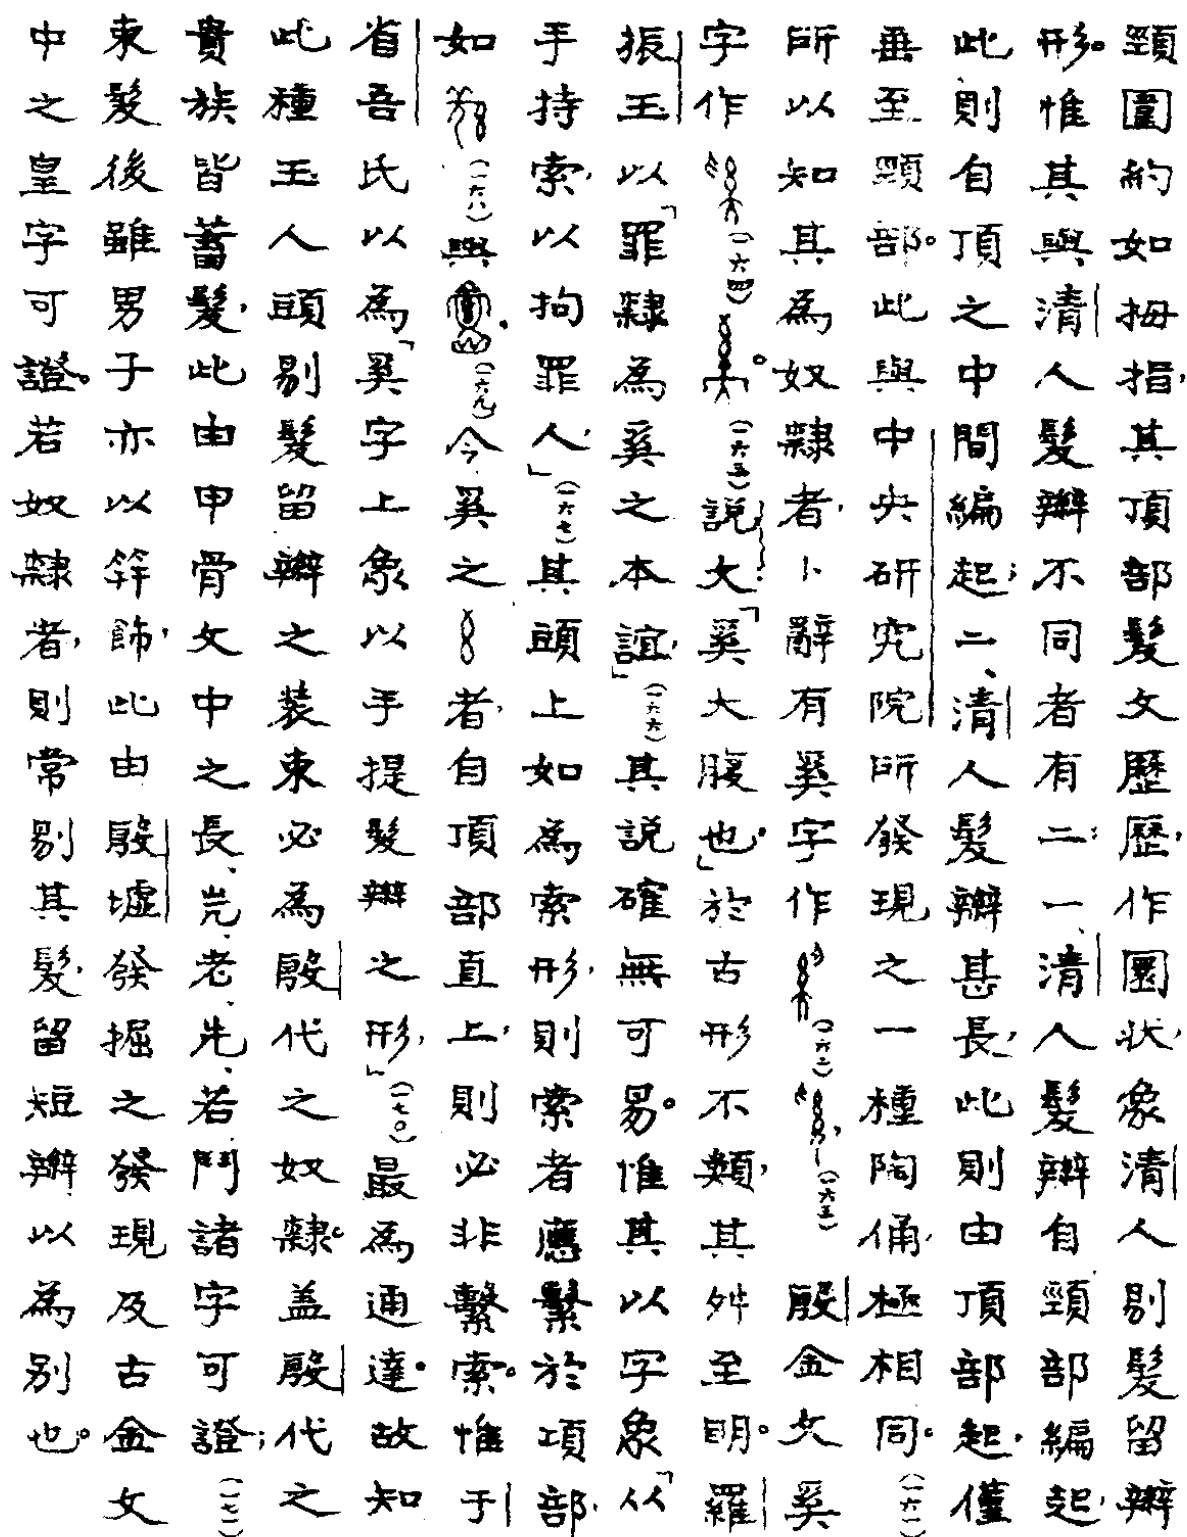 頸圍約如拇指，其頂部髮文歷歷，作圂狀，象清人剔髮留辮
形。惟其與清人髮辮不同者有二：一、清人髮辮自頸部編起，
此則自頂之中間編起；二、清人髮辮甚長，此則由頂部起，僅
垂至頸部。此與中央研究院所發現之一種陶俑，極相同。（一六一）
所以知其為奴隸者，卜辭有奚字作（一六二），（一六三）殷金文奚
字作（一六四）。（一六五）說文：「奚大腹也。」於古形不類，其舛至明。羅
振玉以「罪隸為奚之本誼，」（一六六）其說確無可易。惟其以字象「从
手持索，以拘罪人，」（一六七）其頭上如為索形，則索者應繫於項部，
如（一六八）與，（一六九）今奚之者，自頂部直上，則必非繫索。惟于
省吾氏以為「奚字上象以手提髮辮之形，」（一七〇）最為通達。故知
此種玉人頭剔髮留辮之裝束必為殷代之奴隸。盖殷代之
貴族皆蓄髮，此由甲骨文中之長、老、先、若、鬥諸字可證；（一七一）
束髮後雖男子亦以筓飾，此由殷墟發掘之發現及古金文
中之皇字可證。若奴隸者，則常剔其髮，留短辮以為別也。